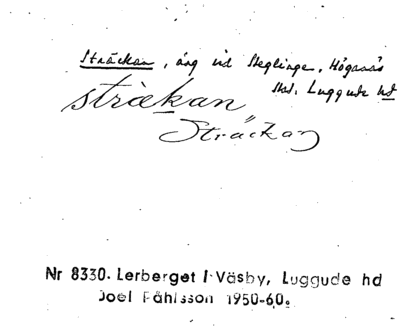 Sträckan, äng vid Steglinge, Höganäs
stad, Luggude hd
strækan
Sträckan
Nr 8330. Lerberget i Väsby, Luggude hd
Joel Påhlsson 1950-60.